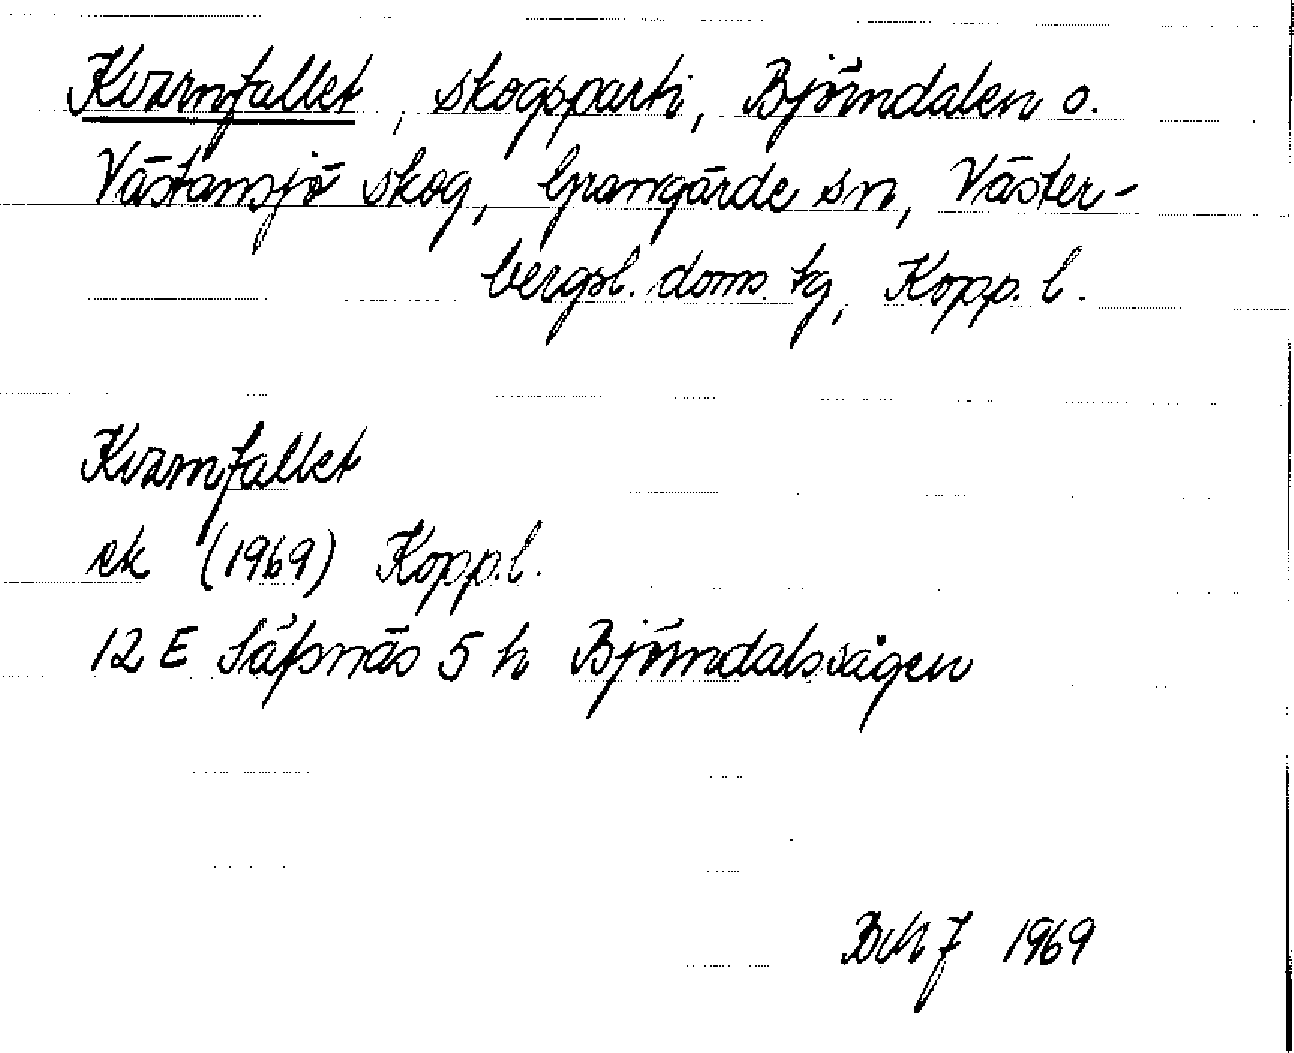 Kvarnfallet, skogsparti, Björndalen o.
Västansjö skog, Grangärde sn, Väster-
bergsl. doms. tg, Kopp. l.
Kvarnfallet
ek (1969) Kopp.l.
12 E Säfsnäs 5 h Björndalssågen
1969